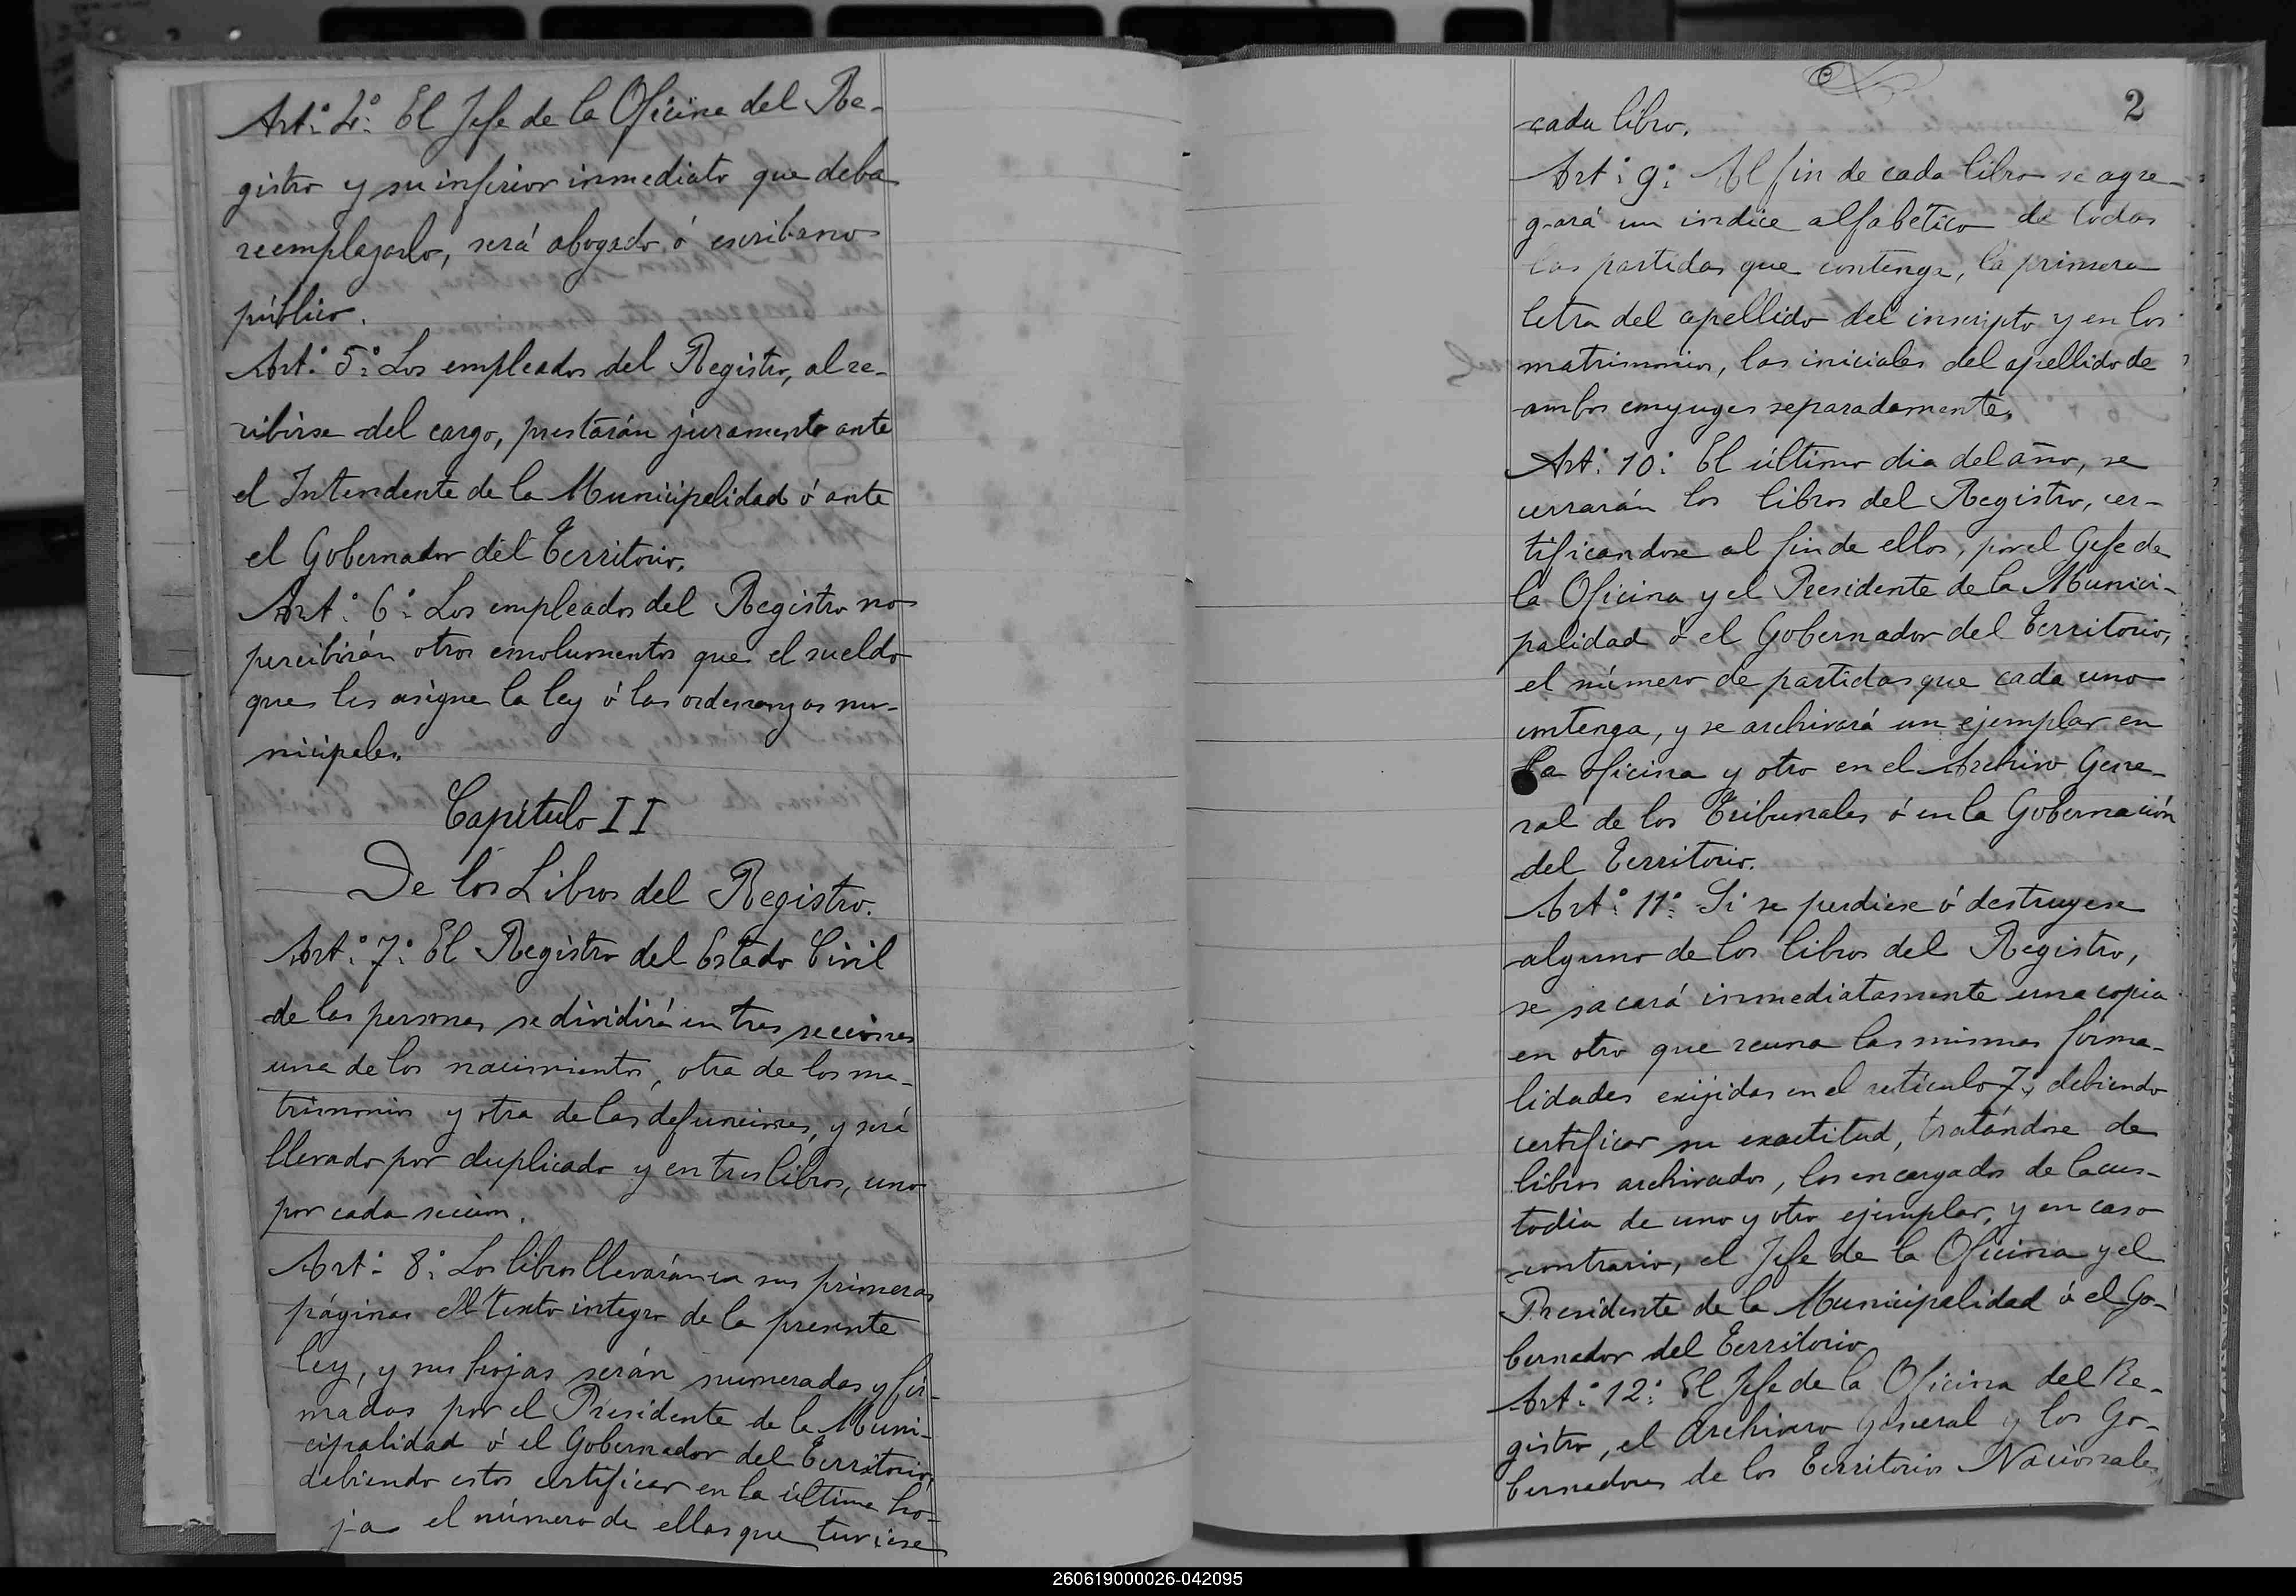 Art.º 4.º El Jefe de la Oficina del Re-
gistro y su inferior inmediato que deba
reemplazarlo, será abogado ó escribano
público.
Art.º 5.º Los empleados del Registro, al re-
cibirse del cargo, prestarán juramento ante
el Intendente de la Municipalidad ó ante
el Gobernador del Territorio.
Art.º 6.º Los empleados del Registro no
percibirán otros emolumentos que el sueldo
que les asigne la ley ó las ordenanzas mu-
nicipales.
Capítulo II
De los Libros del Registro.
Art.º 7.º El Registro del Estado Civil
de las personas se dividirá en tres secciones
una de los nacimientos, otra de los ma-
trimonios y otra de las defunciones, y será
llevado por duplicado y en tres libros, uno
por cada seccion.
Art.º 8.º Los libros llevarán en sus primeras
páginas el texto integro de la presente
ley, y sus hojas serán numeradas y fir-
madas por el Presidente de la Muni-
cipalidad ó el Gobernador del Territorio,
debiendo estos certificar en la última ho-
ja el número de ellas que tuviese
2
cada libro.
Art.º 9.º Al fin de cada libro se agre-
gará un indice alfabético de todas
las partidas que contenga, la primera
letra del apellido del inscripto y en los
matrimonios, las iniciales del apellido de
ambos conyuges separadamente.
Art.º 10.º El último dia del año, se
cerrarán los libros del Registro, cer-
tificandose al fin de ellos, por el Gefe de
la Oficina y el Presidente de la Munici-
palidad ó el Gobernador del Territorio,
el número de partidas que cada uno
contenga, y se archivará un ejemplar en
la oficina y otro en el Archivo Gene-
ral de los Tribunales ó en la Gobernación
del Territorio.
Art.º 11.º Si se perdiese ó destruyese
alguno de los libros del Registro,
se sacará inmediatamente una copia
en otro que reuna las mismas forma-
lidades exijidas en el artículo 7.º, debiendo
certificar su exactitud, tratándose de
libros archivados, los encargados de la cus-
todia de uno y otro ejemplar, y en caso
contrario, el Jefe de la Oficina y el
Presidente de la Municipalidad ó el Go-
bernador del Territorio
Art.º 12.º El Jefe de la Oficina del Re-
gistro, el Archivero General y los Go-
bernadores de los Territorios Nacionales
260619000026-042095